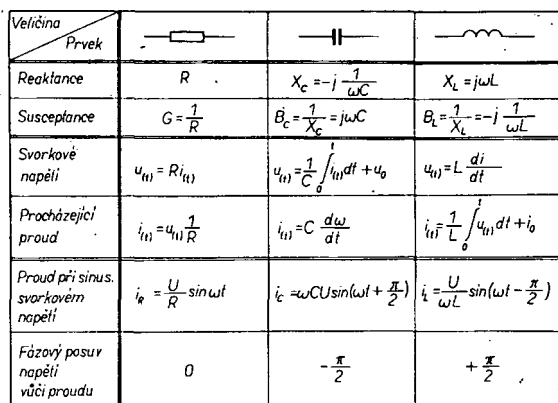 Veličina
Prvek
Reaktance R X_C = -j \frac{1}{ωC} X_L = jωL
Susceptance G = \frac{1}{R} B_C = \frac{1}{X_C} = jωC B_L = \frac{1}{X_L} = -j \frac{1}{ωL}
Svorkové
napětí u_{(t)} = R i_{(t)} u_{(t)} = \frac{1}{C} \int_0^t i_{(t)} dt + u_0 u_{(t)} = L \frac{di}{dt}
Procházející
proud i_{(t)} = u_{(t)} \frac{1}{R} i_{(t)} = C \frac{dω}{dt} i_{(t)} = \frac{1}{L} \int_0^t u_{(t)} dt + i_0
Proud při sinus.
svorkovém
napětí i_R = \frac{U}{R} sin ωt i_C = ωCU sin(ωt + \frac{π}{2}) i_L = \frac{U}{ωL} sin(ωt - \frac{π}{2})
Fázový posuv
napětí
vůči proudu 0 -\frac{π}{2} +\frac{π}{2}